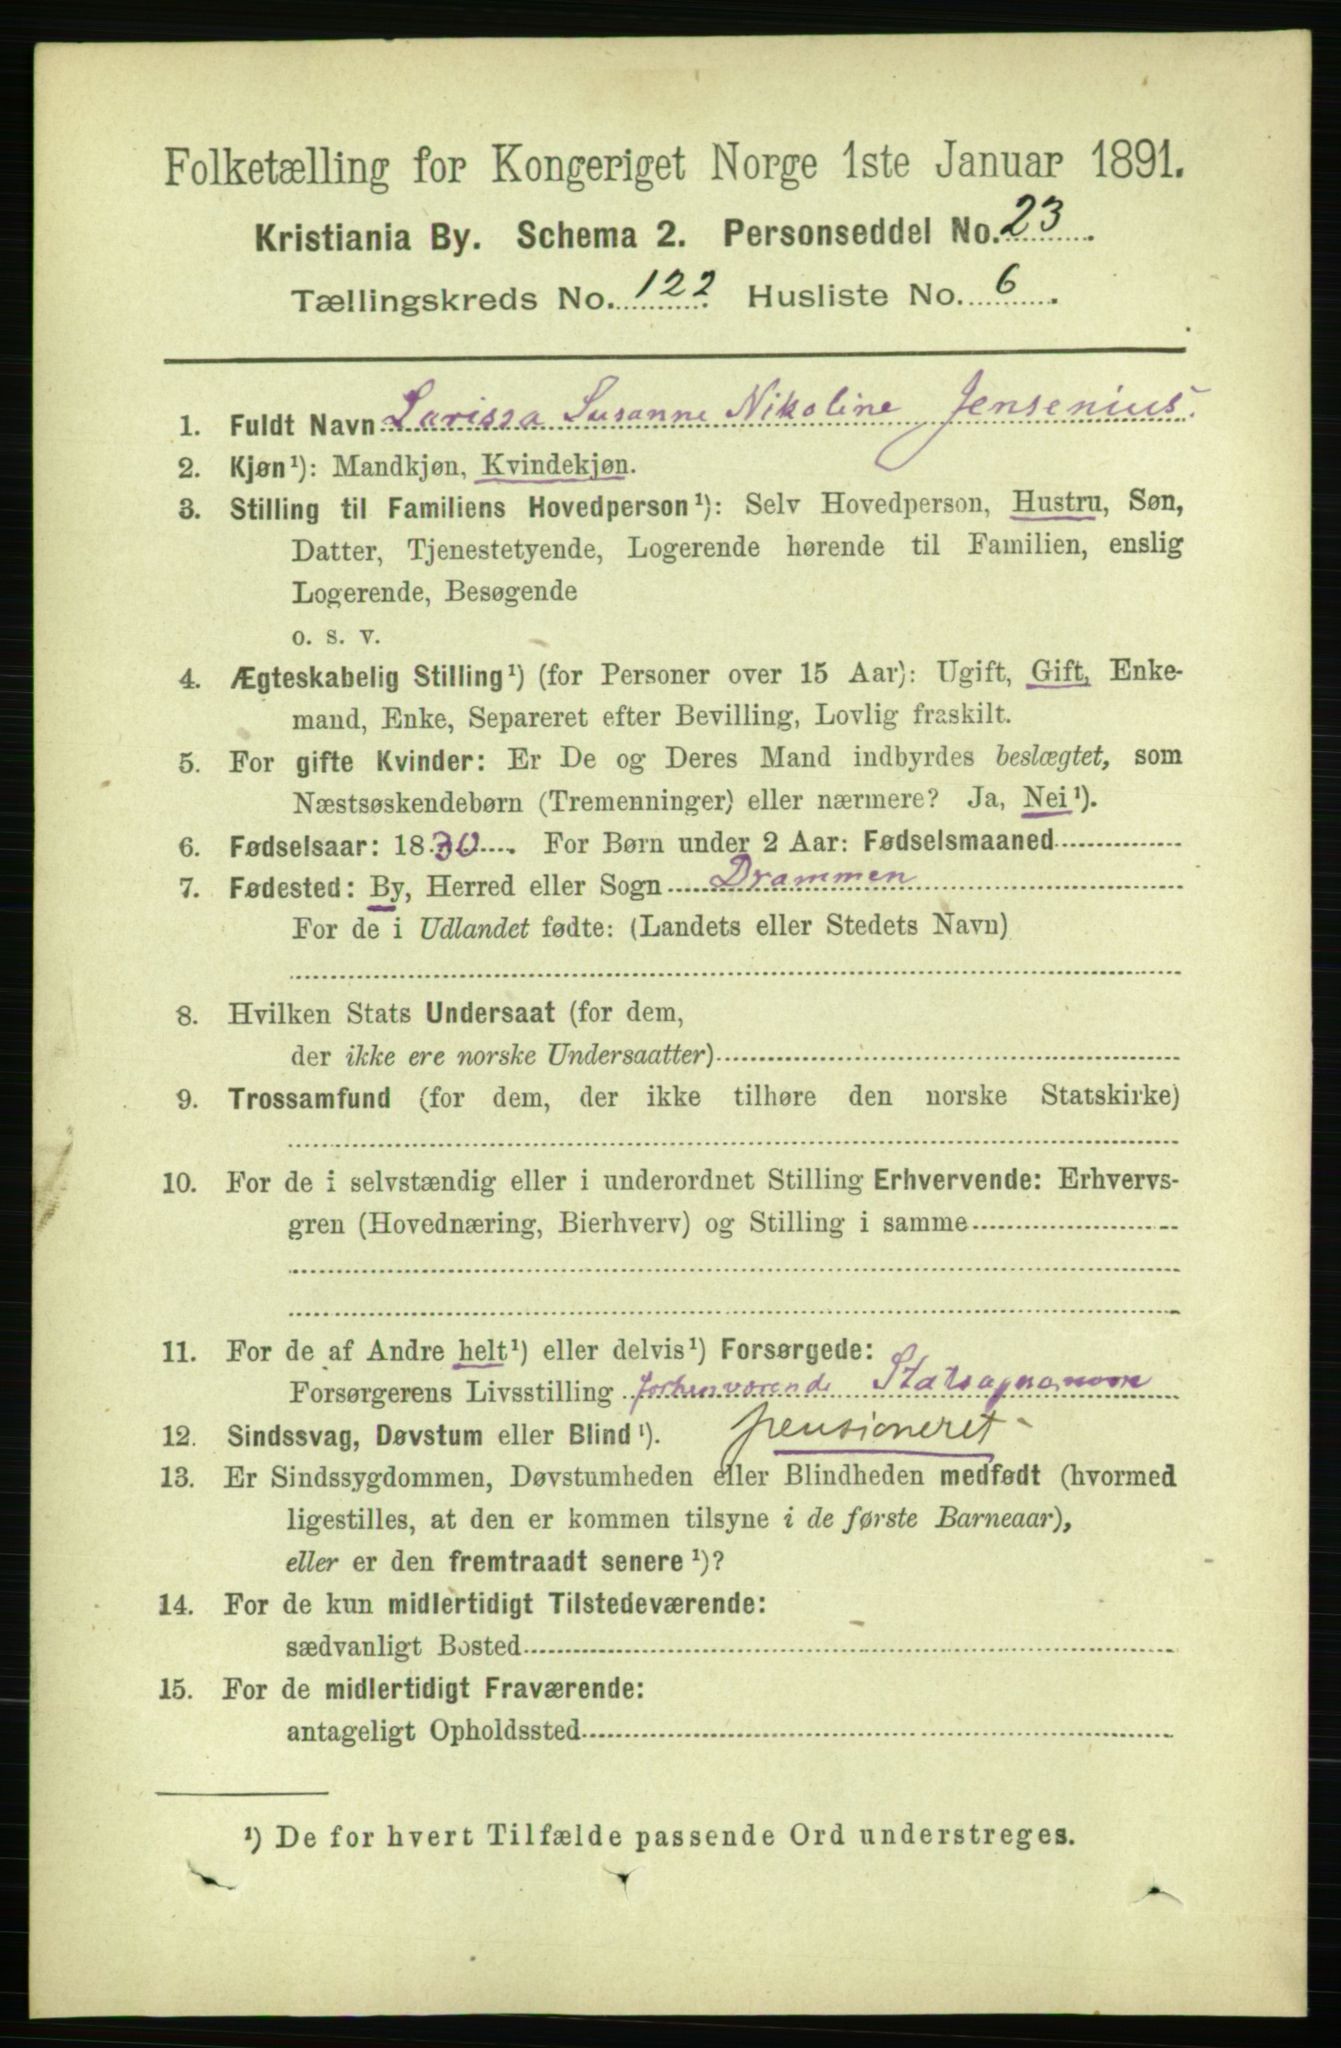 Folketælling for Kongeriget Norge 1ste Januar 1891.
Kristiania By. Schema 2. Personseddel No. 23.
Tællingskreds No. 122 Husliste No. 6.
1. Fuldt Navn Larissa Susanne Nikoline Jensenius.
2. Kjøn¹): Mandkjøn, Kvindekjøn.
3. Stilling til Familiens Hovedperson¹): Selv Hovedperson, Hustru, Søn,
Datter, Tjenestetyende, Logerende hørende til Familien, enslig
Logerende, Besøgende
o. s. v.
4. Ægteskabelig Stilling¹) (for Personer over 15 Aar): Ugift, Gift, Enke-
mand, Enke, Separeret efter Bevilling, Lovlig fraskilt.
5. For gifte Kvinder: Er De og Deres Mand indbyrdes beslægtet, som
Næstsøskendebørn (Tremenninger) eller nærmere? Ja, Nei¹).
6. Fødselsaar: 1830. For Børn under 2 Aar: Fødselsmaaned
7. Fødested: By, Herred eller Sogn Drammen
For de i Udlandet fødte: (Landets eller Stedets Navn)
8. Hvilken Stats Undersaat (for dem,
der ikke ere norske Undersaatter)
9. Trossamfund (for dem, der ikke tilhøre den norske Statskirke)
10. For de i selvstændig eller i underordnet Stilling Erhvervende: Erhvervs-
gren (Hovednæring, Bierhverv) og Stilling i samme
11. For de af Andre helt¹) eller delvis¹) Forsørgede:
Forsørgerens Livsstilling forhenværende
12. Sindssvag, Døvstum eller Blind¹). pensioneret
13. Er Sindssygdommen, Døvstumheden eller Blindheden medfødt (hvormed
ligestilles, at den er kommen tilsyne i de første Barneaar),
eller er den fremtraadt senere¹)?
14. For de kun midlertidigt Tilstedeværende:
sædvanligt Bosted
15. For de midlertidigt Fraværende:
antageligt Opholdssted
¹) De for hvert Tilfælde passende Ord understreges.